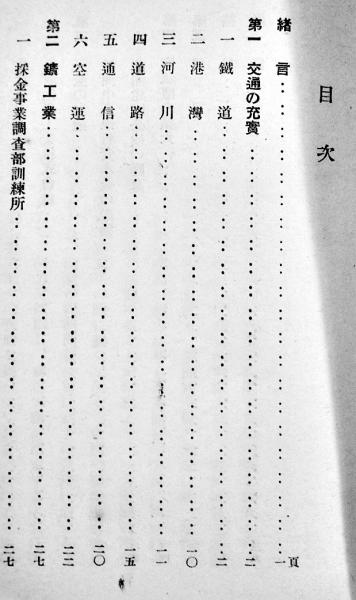 目次
緒言……一頁
第一 交通の充實……二
一 鐵道……二
二 港灣……一〇
三 河川……一一
四 道路……一五
五 通信……二〇
六 空運……二二
第二 鑛工業……二七
一 採金事業調査部訓練所……二七